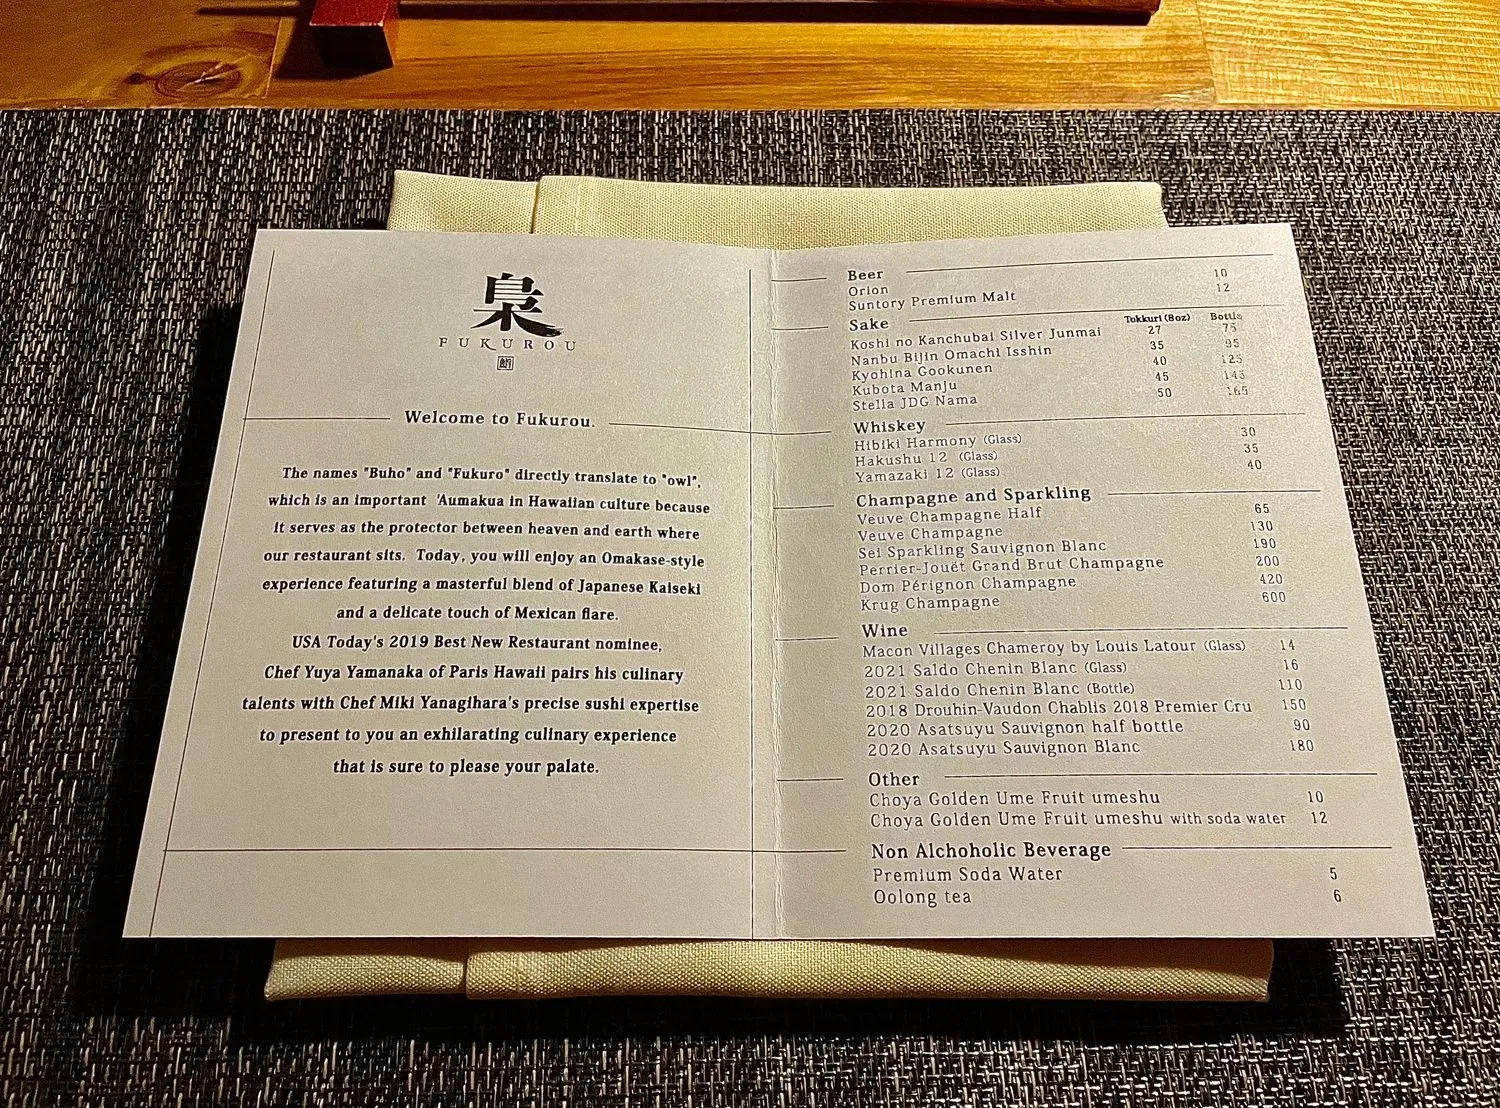 梟
FUKUROU
Welcome to Fukurou.
The names "Buho" and "Fukuro" directly translate to "owl",
which is an important 'Aumakua in Hawaiian culture because
it serves as the protector between heaven and earth where
our restaurant sits. Today, you will enjoy an Omakase-style
experience featuring a masterful blend of Japanese Kaiseki
and a delicate touch of Mexican flare.
USA Today's 2019 Best New Restaurant nominee,
Chef Yuya Yamanaka of Paris Hawaii pairs his culinary
talents with Chef Miki Yanagihara's precise sushi expertise
to present to you an exhilarating culinary experience
that is sure to please your palate.
Beer
Orion 10
Suntory Premium Malt 12
Sake Tokkuri (8oz) Bottle
Koshi no Kanchubai Silver Junmai 27 75
Nanbu Bijin Omachi Isshin 35 95
Kyohina Gookunen 40 125
Kubota Manju 45 145
Stella JDG Nama 50 165
Whiskey
Hibiki Harmony (Glass) 30
Hakushu 12 (Glass) 35
Yamazaki 12 (Glass) 40
Champagne and Sparkling
Veuve Champagne Half 65
Veuve Champagne 130
Sei Sparkling Sauvignon Blanc 190
Perrier-Jouët Grand Brut Champagne 200
Dom Pérignon Champagne 420
Krug Champagne 600
Wine
Macon Villages Chameroy by Louis Latour (Glass) 14
2021 Saldo Chenin Blanc (Glass) 16
2021 Saldo Chenin Blanc (Bottle) 110
2018 Drouhin-Vaudon Chablis 2018 Premier Cru 150
2020 Asatsuyu Sauvignon half bottle 90
2020 Asatsuyu Sauvignon Blanc 180
Other
Choya Golden Ume Fruit umeshu 10
Choya Golden Ume Fruit umeshu with soda water 12
Non Alchoholic Beverage
Premium Soda Water 5
Oolong tea 6